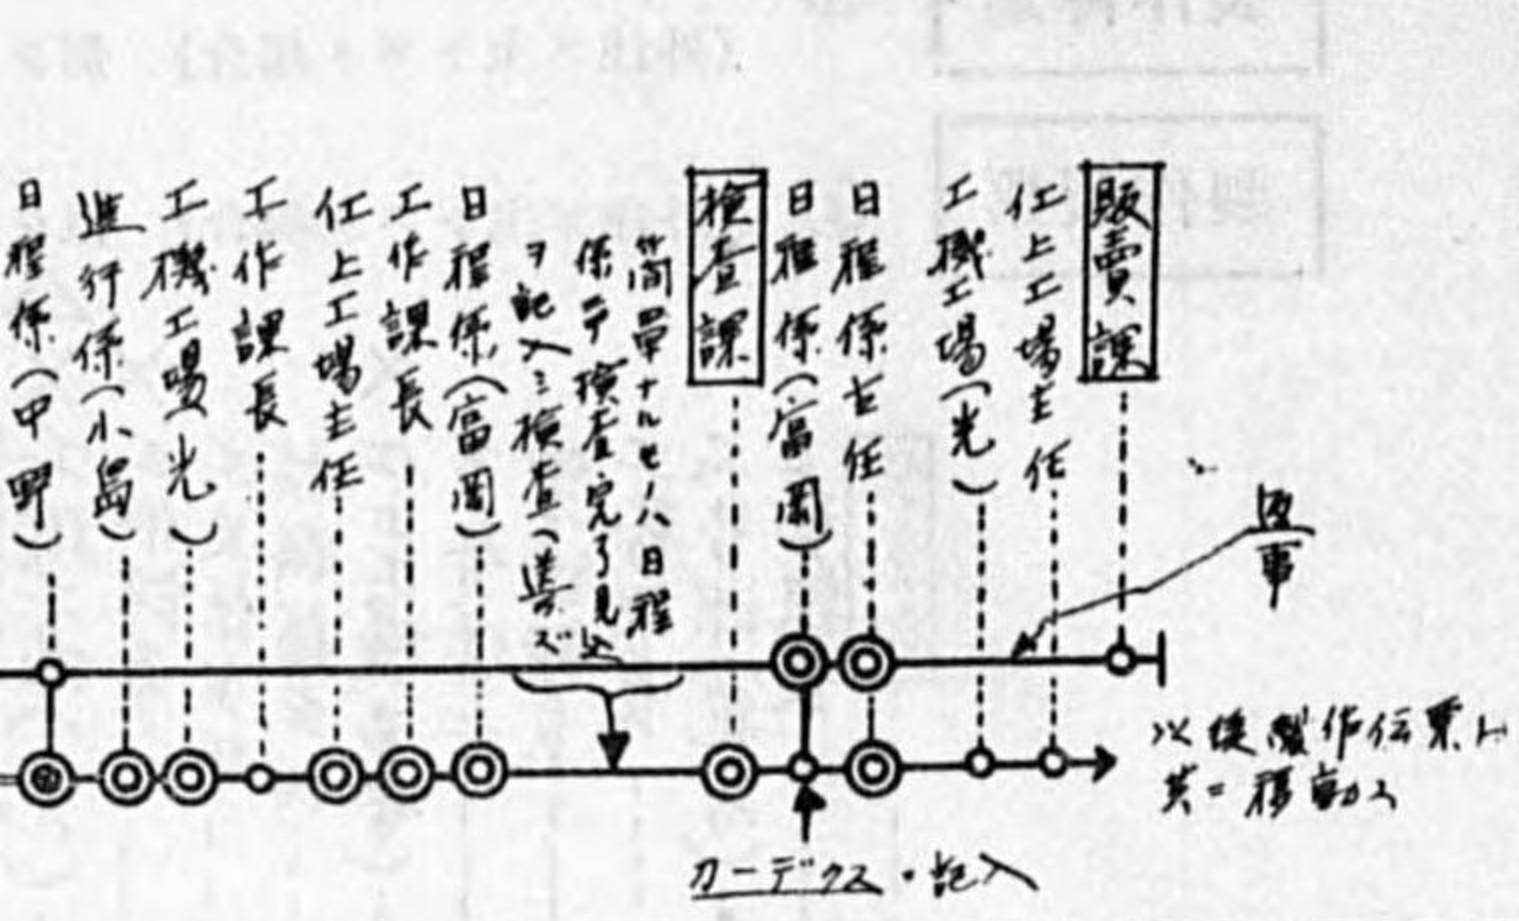 販賣課
仕上工場主任
工機工場(光)
日程係主任
日程係(富岡)
検査課
簡單ナルモノハ日程
係ニテ検査完了見込
ヲ記入シ検査
日程係(富岡)
工作課長
仕上工場主任
工作課長
工機工場(光)
進行係(小島)
日程係(中野)
以後製作伝票ト
共ニ移動ス
カーデクス・記入